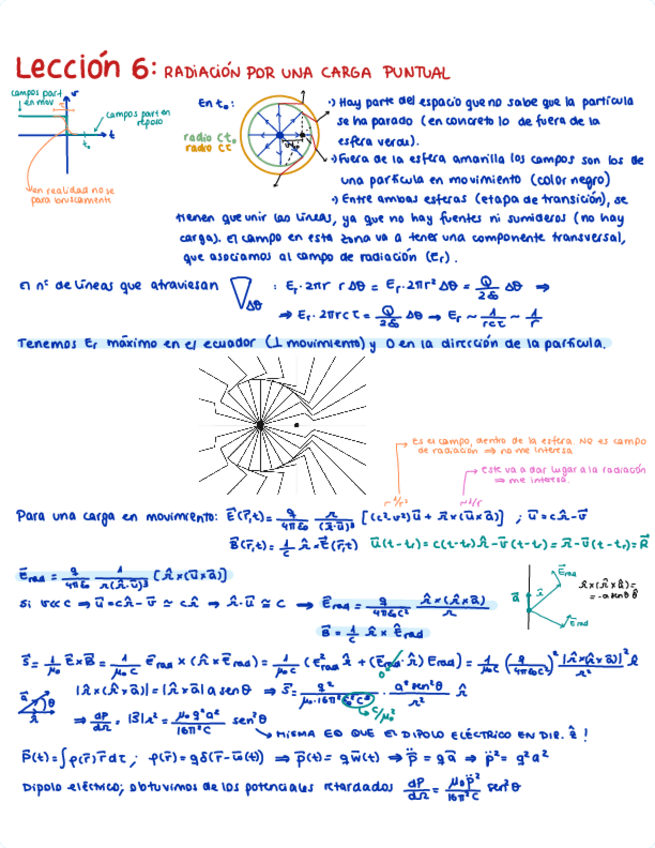 Lección 6: RADIACIÓN POR UNA CARGA PUNTUAL
campos part en mov
v
τ
campos part en reposo
t
t₀
en realidad no se para bruscamente
En t₀:
radio ct₀
radio cτ
·) Hay parte del espacio que no sabe que la partícula
se ha parado (en concreto lo de fuera de la
esfera verde).
·) Fuera de la esfera amarilla los campos son los de
una partícula en movimiento (color negro)
·) Entre ambas esferas (etapa de transición), se
tienen que unir las líneas, ya que no hay fuentes ni sumideros (no hay
carga). El campo en esta zona va a tener una componente transversal,
que asociamos al campo de radiación (Er).
El nº de líneas que atraviesan
Δθ
: Er·2πr rΔθ = Er·2πr²Δθ = Q/2ε₀ Δθ ⇒
⇒ Er·2πrcτ = Q/2ε₀ Δθ → Er ~ 1/rcτ ~ 1/r
Tenemos Er máximo en el ecuador (⊥ movimiento) y 0 en la dirección de la partícula.
Es el campo, dentro de la esfera. NO es campo
de radiación ⇒ no me interesa
Este va a dar lugar a la radiación
⇒ me interesa.
~1/r²
~1/r
Para una carga en movimiento: E⃗(r⃗,t) = q/4πε₀ r/(r⃗·u⃗)³ [(c²-v²)u⃗ + r⃗×(u⃗×a⃗)] ; u⃗ = cr̂-v⃗
B⃗(r⃗,t) = 1/c r̂×E⃗(r⃗,t)
u⃗(t-tr) = c(t-tr)r̂ - v⃗(t-tr) = r⃗ - v⃗(t-tr) = R⃗
E⃗rad = q/4πε₀ 1/r(r̂·u⃗)³ [r̂×(u⃗×a⃗)]
E⃗rad
a⃗
r̂
E⃗rad
r̂×(r̂×a⃗) =
= -a senθ θ̂
Si v<<c ⇒ u⃗ = cr̂-v⃗ ≃ cr̂ ⇒ r̂·u⃗ ≃ c → E⃗rad = q/4πε₀c² r̂×(r̂×a⃗)/r
B⃗ = 1/c r̂ × E⃗rad
S⃗ = 1/μ₀ E⃗×B⃗ = 1/μ₀c E⃗rad × (r̂×E⃗rad) = 1/μ₀c (E²rad r̂ + (E⃗rad·r̂) Erad) = 1/μ₀c (q/4πε₀c²)² |r̂×(r̂×a⃗)|²/r² r̂
0
a⃗
θ
r̂
|r̂×(r̂×a⃗)| = |r̂×a⃗| a senθ ⇒ S⃗ = q²/μ₀·16π²ε₀²c⁵ · a²sen²θ/r² r̂
c/μ₀²
⇒ dP/dΩ = |S⃗|r² = μ₀q²a²/16π²c sen²θ
MISMA EQ QUE EL DIPOLO ELÉCTRICO EN DIR. ẑ !
p⃗(t) = ∫ρ(r⃗)r⃗dτ ; ρ(r⃗) = qδ(r⃗-w⃗(t)) ⇒ p⃗(t) = qw⃗(t) ⇒ p̈⃗ = qa⃗ ⇒ p̈² = q²a²
Dipolo eléctrico; obtuvimos de los potenciales retardados dP/dΩ = μ₀p̈²/16π²c sen²θ